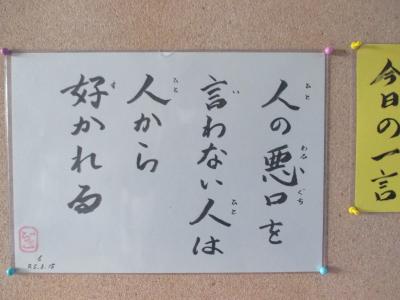 今日の一言
人の悪口を
言わない人は
人から
好かれる